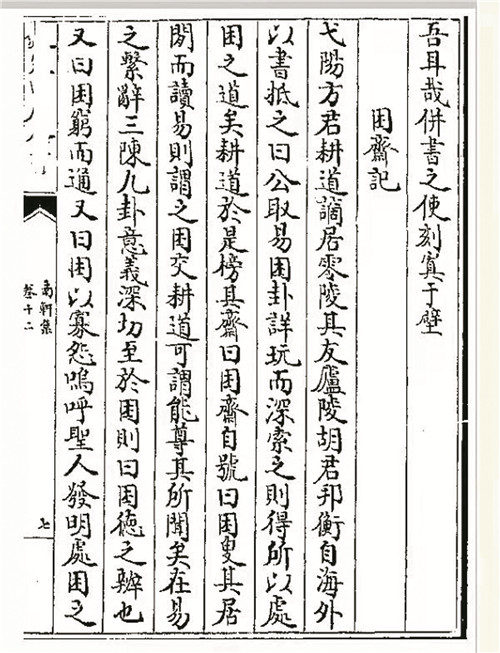 吾耳哉併書之使刻寘于壁
困齋記
弋陽方君耕道謫居零陵其友廬陵胡君邦衡自海外
以書抵之曰公取易困卦詳玩而深索之則得所以處
困之道矣耕道於是榜其齋曰困齋自號曰困叟其居
閒而讀易則謂之困交耕道可謂能尊其所聞矣在易
之繫辭三陳九卦意義深切至於困則曰困德之辨也
又曰困窮而通又曰困以寡怨嗚呼聖人發明處困之
南軒集
卷十二
七